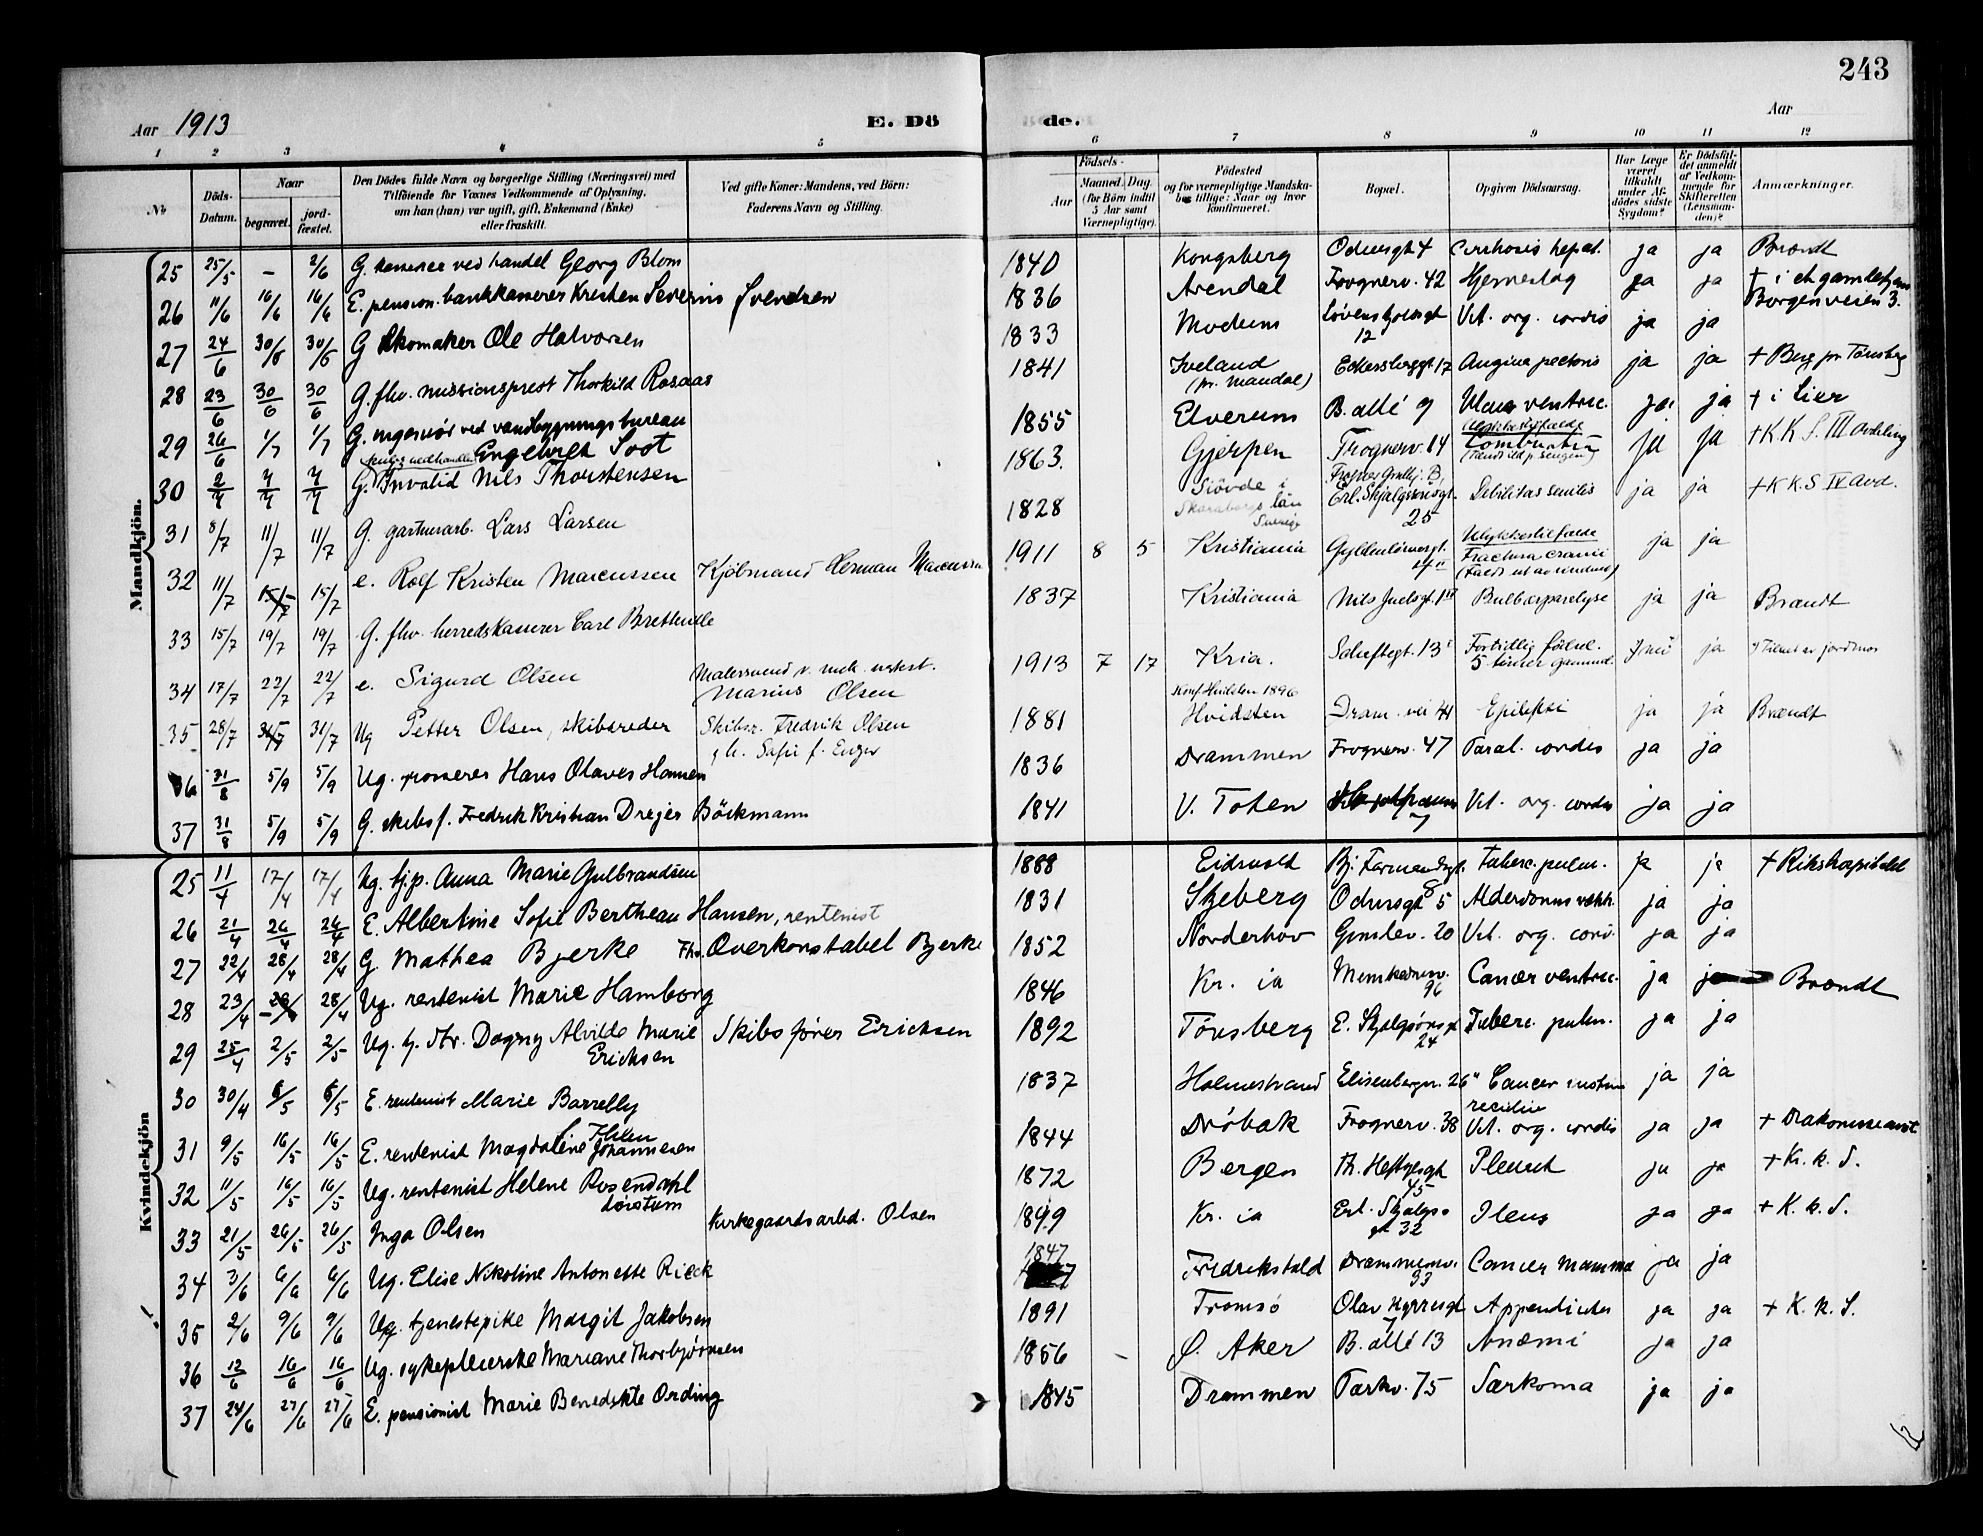 243
Aar 1913
E. Döde.
Aar
1 2 3 4 5 6 7 8 9 10 11 12
No
Döds-Datum.
Naar
begravet.
jord-fæstet.
Den Dödes fulde Navn og borgerlige Stilling (Næringsvei) med
Tilföiende for Voxnes Vedkommende af Oplysning,
om han (hun) var ugift, gift, Enkemand (Enke)
eller fraskilt.
Ved gifte Koner: Mandens, ved Börn:
Faderens Navn og Stilling.
Födsels-
Aar
Maaned. Dag.
(for Börn indtil
5 Aar samt
Værnepligtige).
Födested
og for værnepligtige Mandska-
ber tillige: Naar og hvor
konfirmeret.
Bopæl.
Opgiven Dödsaarsag.
Har Læge
været
tilkaldt
under Af-
dödes sidste
Sygdom?
Er Dödsfal-
det anmeldt
af Vedkom-
mende for
Skifteretten
(Lensman-
den)?
Anmærkninger.
Mandkjön.
25 25/5 – 2/6 G. kasserer ved handel Georg Blom 1840 Kongsberg Odinsgt 4 Cirrhosis hepat. ja ja Brandt
26 11/6 16/6 16/6 E. pension. bankkasserer Kristen Severin Svendsen 1836 Arendal Frognerv. 42 Hjerneslag ja ja + i et gamlehjem Borgenveien 3.
27 24/6 30/6 30/6 G Skomaker Ole Halvorsen 1833 Modum Løvenskjoldsgt 12 Vit. org. cordis ja ja
28 23/6 30/6 30/6 G. fhv. missionsprest Thorkild Rosaas 1841 Iveland (pr. Mandal) Eckersbergsgt 17 Angina pectoris ja ja + Berg pr Tönsberg
29 26/6 1/7 1/7 G. ingeniør ved vandbygningsbureau Engebret Soot 1855 Elverum B. allé 9 Ulcus ventric. ja ja + i Lier
30 2/7 7/7 7/7 G. Invalid Nils Thorstensen 1863. Gjerpen Frognerv. 14 Ulykkestilfælde Combustio ja ja + K.K.S. III avdeling
31 8/7 11/7 11/7 G. gartnerarb. Lars Larsen 1828 Skövde i Skaraborgs län Sverige Erl. Skjalgsønsgt. 25 Debilitas senilis ja ja + K K.S IV Avd.
32 11/7 15/7 15/7 e. Rolf Kristen Marcussen Kjöbmand Herman Marcussen 1911 8 5 Kristiania Gyldenlövesgt. Ulykkestilfælde Fractura cranii (Faldt ut av vindue) ja ja
33 15/7 19/7 19/7 G. fhv. herredskasserer Carl Bretteville 1837 Kristiania Nils Juelsgt. Bulbærparalyse ja ja Brandt
34 17/7 22/7 22/7 e. Sigurd Olsen Malersvend v. mek. verkst. Marius Olsen 1913 7 17 Kria. Schiftsgt. 13 Fortidlig födsel. 5 timer gammel. ja
35 28/7 31/7 31/7 Ug Petter Olsen, skibsreder Skibsr. Fredrik Olsen 1881 Hvidsten Konf Hvidsten 1896 Dram. vei 44 Epilepsi ja ja Brandt
36 31/8 5/9 5/9 Ug. Hans Olaves Hansen 1836 Drammen Frognerv. 47 Paral. cordis ja ja
37 31/8 5/9 5/9 G. skibsf. Fredrik Kristian Dreyer Böckmann 1841 V. Toten Vit. org. cordis ja ja
Kvindekjön
25 11/4 17/4 17/4 Ug. tj.p. Anna Marie Gulbrandsen 1888 Eidsvold Bj. Farmandsgt. 8 Tuberc. pulm. ja ja + Rikshospitalet
26 21/4 26/4 26/4 E. Albertine Sofie Bertheau Hansen, rentenist 1831 Skjeberg Odinsgt 5 Alderdomssvækk. ja ja
27 22/4 28/4 28/4 G. Mathea Bjerke Fhv. Overkonstabel Bjerke 1852 Norderhov Gimlev. 20 Vit. org. cord. ja ja
28 23/4 28/4 28/4 Ug. rentenist Marie Hamborg 1846 Kr. ia Munkedamsv. 96 Cancer ventric. ja ja Brandt
29 25/4 2/5 2/5 Ug. Dagny Alvilde Marie Ericksen Skibsfører Ericksen 1892 Tönsberg E. Skjalgsönsgt 24 Tuberc. pulm. ja ja
30 30/4 6/5 6/5 E. rentenist Marie Borrelly 1837 Holmestrand Elisenbergv. 26 Cancer recidiv ja ja
31 9/5 16/5 16/5 E. rentenist Magdalene Johannesen 1844 Dröbak Frognerv. 38 Vit. org. cordis ja ja + Diakonisseanst.
32 11/5 16/5 16/5 Ug. rentenist Helene Rosendahl 1872 Bergen Th. Heftyesgt 45 Pleurit ja ja + Kr. k. S.
33 21/5 26/5 26/5 Inga Olsen Kirkegaardsarbd. Olsen 1849 Kr. ia Erl. Skjalgs. gt 32 Ileus ja ja + K. k. S.
34 3/6 6/6 6/6 Ug. Elise Nikoline Antonette Rieck 1847 Fredrikshald Drammensv. 93 Cancer mamma ja ja
35 2/6 9/6 9/6 Ug. tjenestepike Margit Jakobsen 1891 Tromsö Olav Kyrresgt 7 Appendicites ja ja + K. K. S.
36 12/6 16/6 16/6 Ug. sykepleierske Mariane Thorbjørnsen 1856 Ø. Aker B. allé 13 Anæmi ja ja
37 24/6 27/6 27/6 E. pensionist Marie Benedikte Ording 1845 Drammen Parkv. 75 Sarkoma ja ja